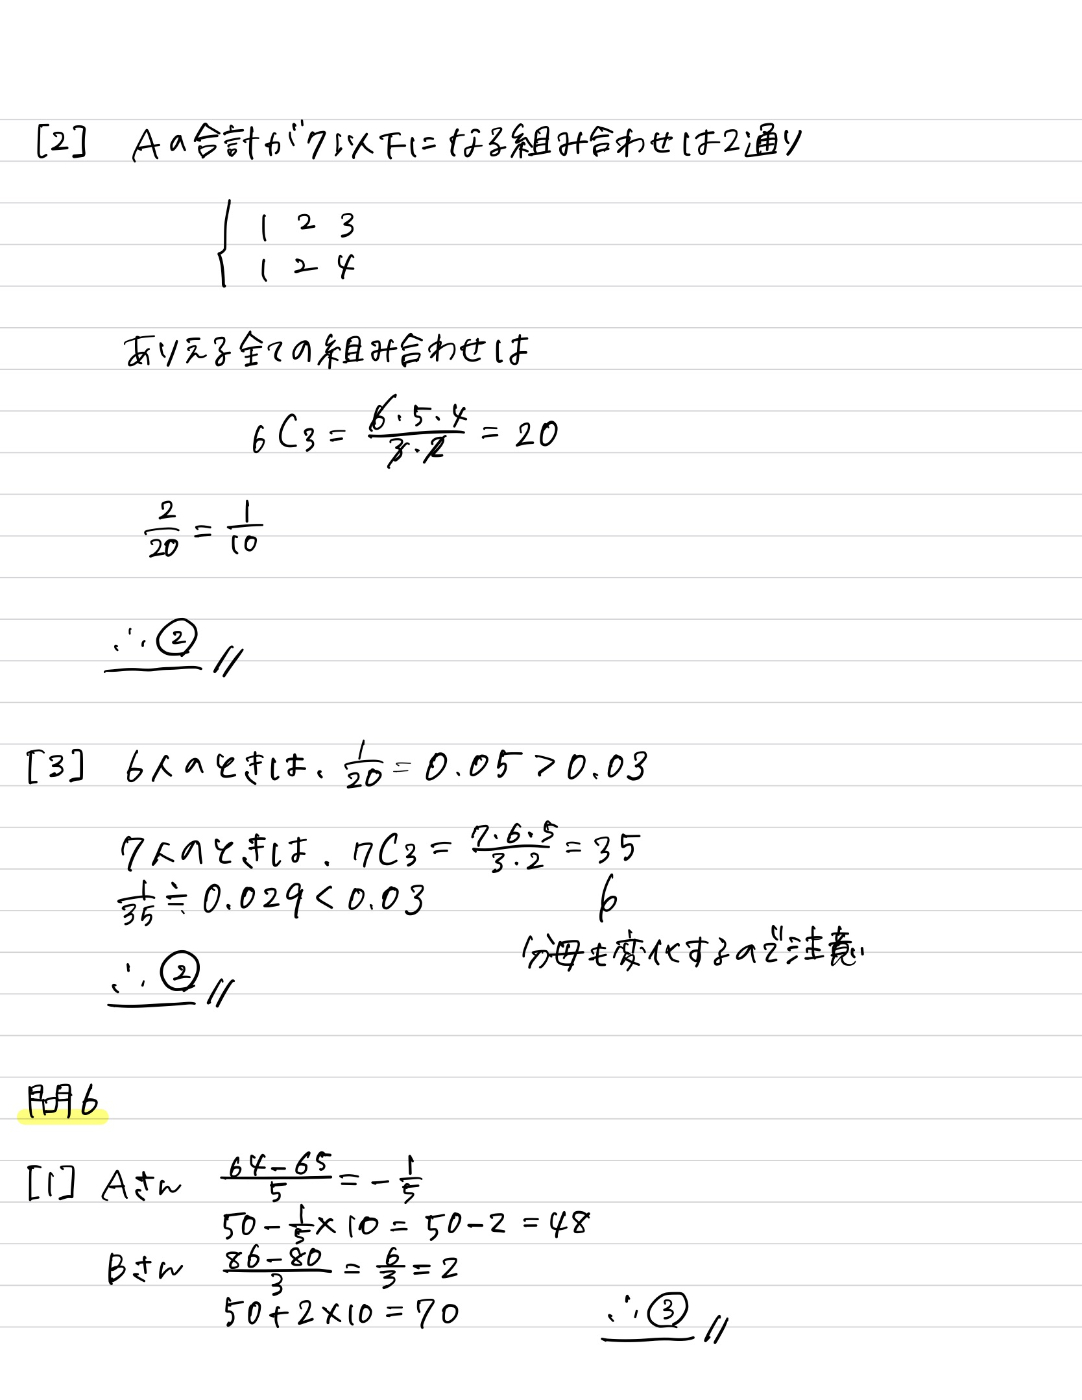 [2] Aの合計が7以下になる組み合わせは2通り
1 2 3
1 2 4
ありえる全ての組み合わせは
6C3 = 6・5・4/3・2 = 20
2/20 = 1/10
∴ ② //
[3] 6人のときは、1/20 = 0.05 > 0.03
7人のときは、7C3 = 7・6・5/3・2 = 35
1/35 ≒ 0.029 < 0.03
6
分母も変化するので注意
∴ ② //
問6
[1] Aさん 64-65/5 = -1/5
50 - 1/5 × 10 = 50 - 2 = 48
Bさん 86-80/3 = 6/3 = 2
50 + 2 × 10 = 70 ∴ ③ //